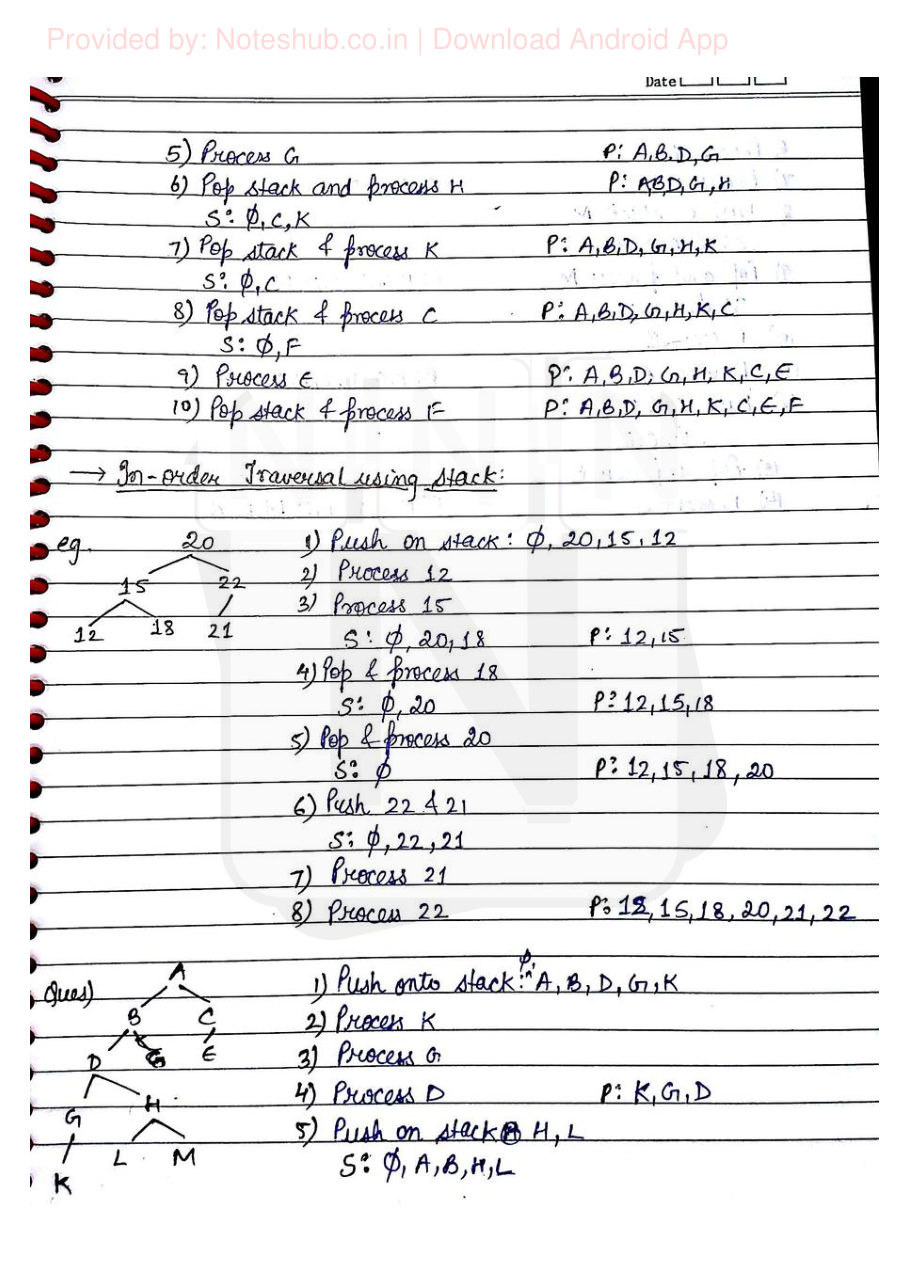 Provided by: Noteshub.co.in | Download Android App
Date
5) Process G P: A,B,D,G
6) Pop stack and process H P: ABD,G,H
S: φ,C,K
7) Pop stack & process K P: A,B,D,G,H,K
S: φ,C
8) Pop stack & process C P: A,B,D,G,H,K,C
S: φ,F
9) Process E P: A,B,D,G,H,K,C,E
10) Pop stack & process F P: A,B,D,G,H,K,C,E,F
→ In-order Traversal using stack:
eg. 20 1) Push on stack: φ, 20,15,12
15 22 2) Process 12
3) Process 15
12 18 21 S: φ, 20,18 P: 12,15
4) Pop & process 18
S: φ, 20 P: 12,15,18
5) Pop & process 20
S: φ P: 12,15,18,20
6) Push 22 & 21
S: φ,22,21
7) Process 21
8) Process 22 P: 12,15,18,20,21,22
Ques) A 1) Push onto stack: φ, A, B, D, G, K
B C 2) Process K
D G E 3) Process G
4) Process D P: K,G,D
G H 5) Push on stack H, L
L M S: φ, A, B, H, L
K